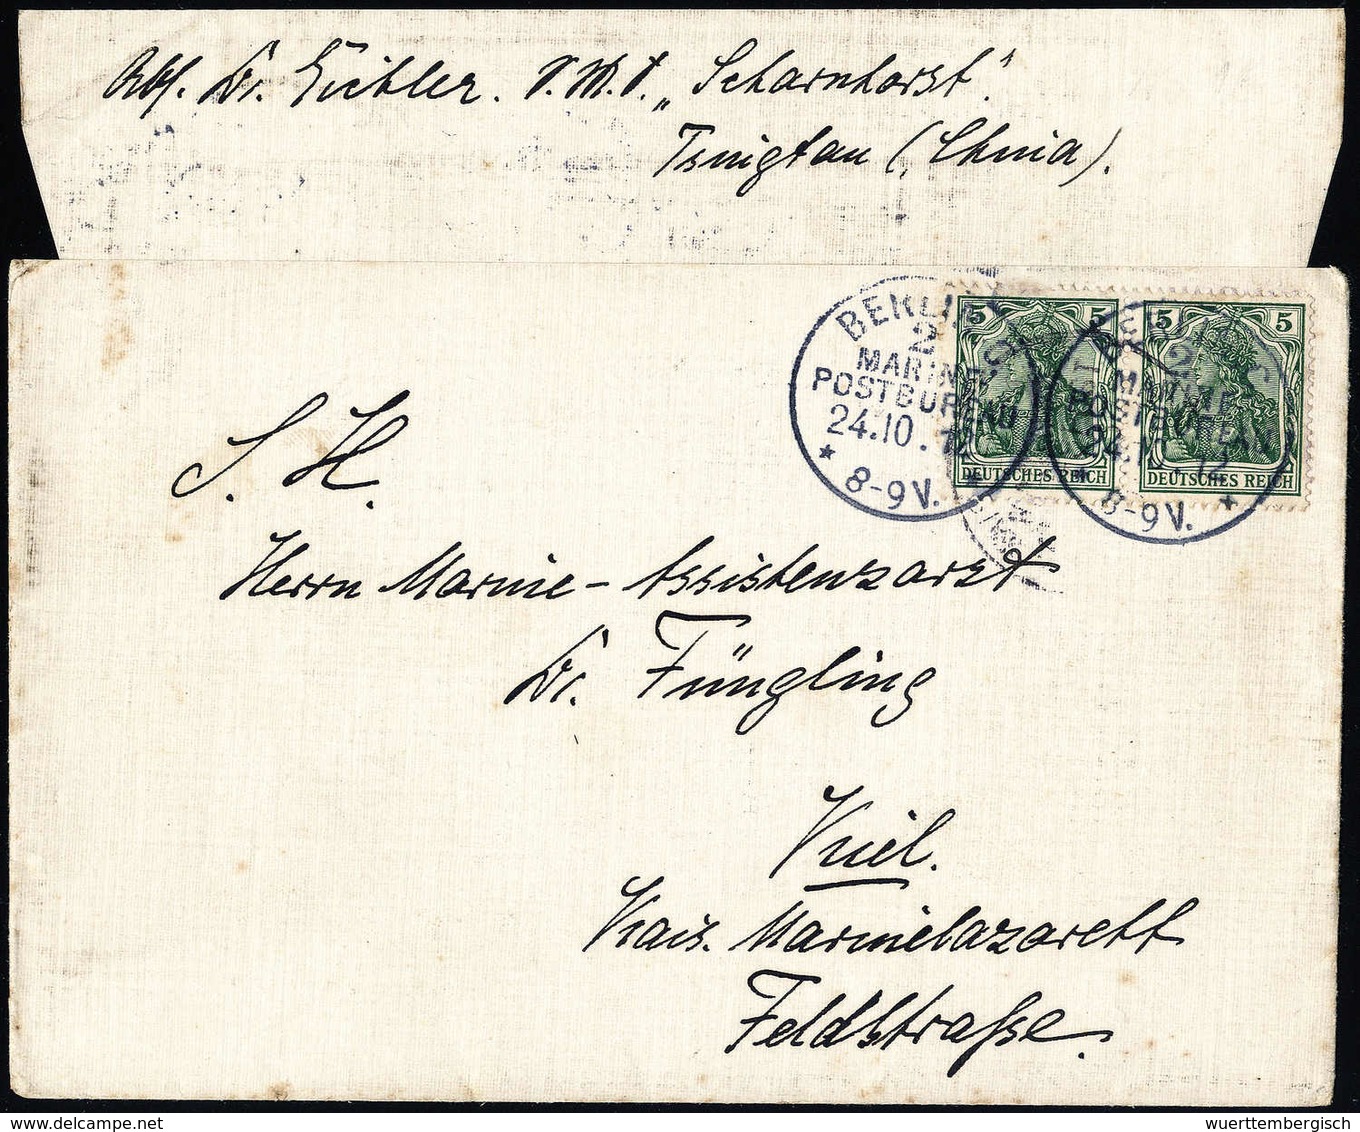 Abs. Dr. Eichler. S.M.S. „Scharnhorst".
Tsingtau (China).
BERLIN
2
MARINE-
POSTBUREAU
24.10.12
* 8-9V.
5 5
DEUTSCHES REICH
5 5
DEUTSCHES REICH
MARINE-
POSTBUREAU
24.10.12
8-9V. *
S. H.
Herrn Marine-Assistenzarzt
Dr. Füngling
Kiel.
Kais. Marinelazarett
Feldstraße.
wuerttembergisch